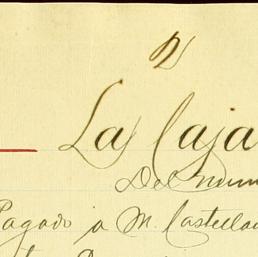 La Caja
Del num
Pagado a M. Castella